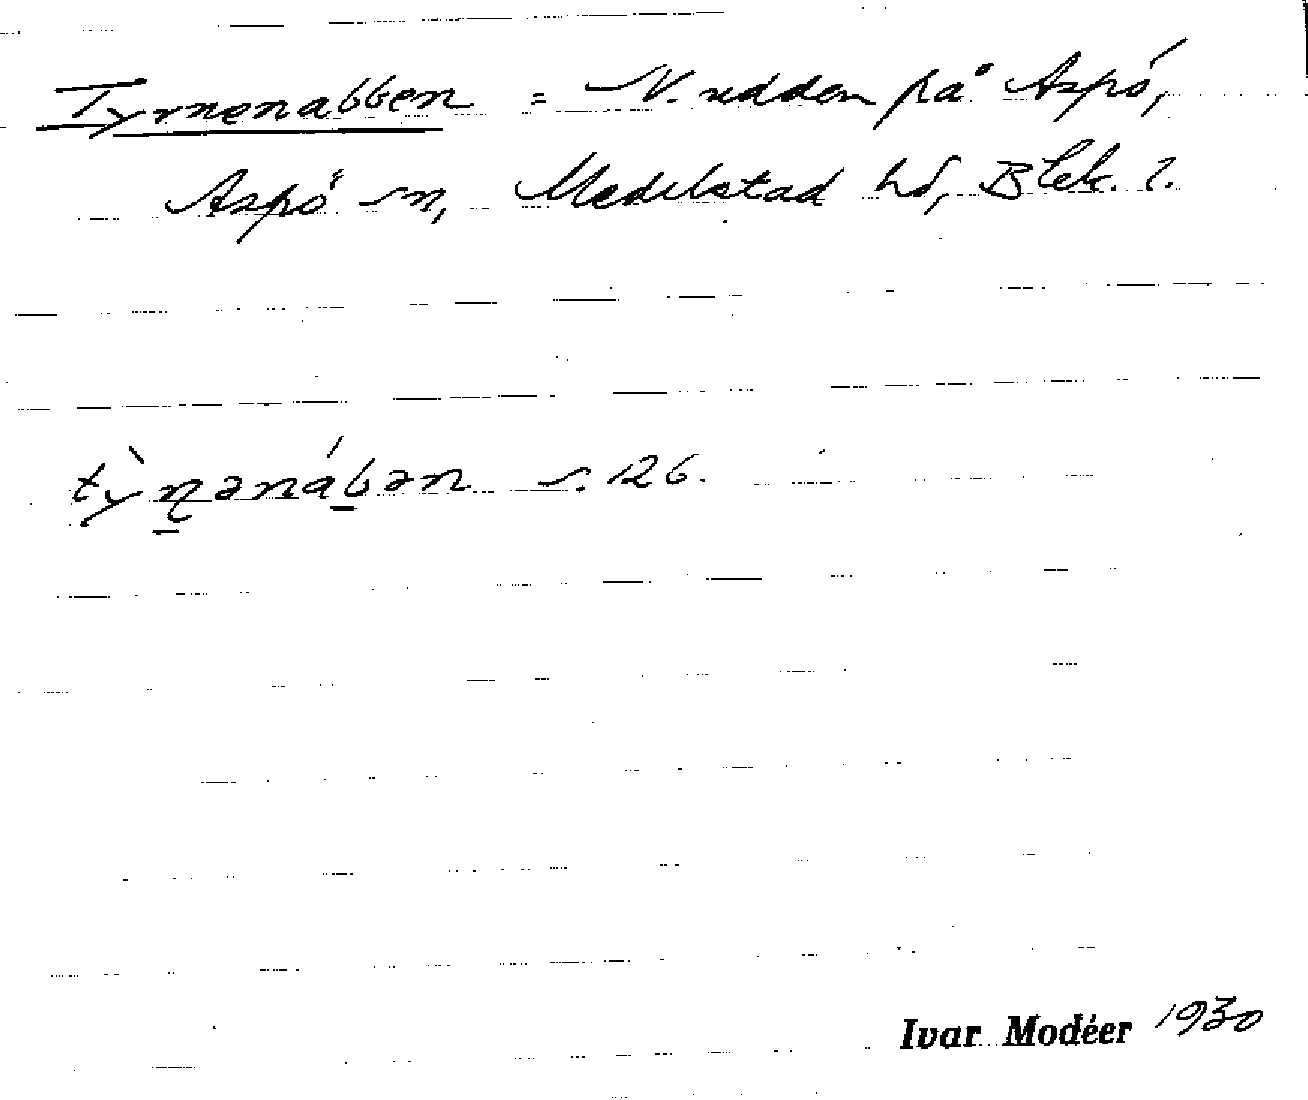 Tyrnenabben = N. udden på Aspö,
Aspö sn, Medelstad hd, Blek. l.
tỳn̠ənáb̠ən s. 126.
Ivar Modéer 1930